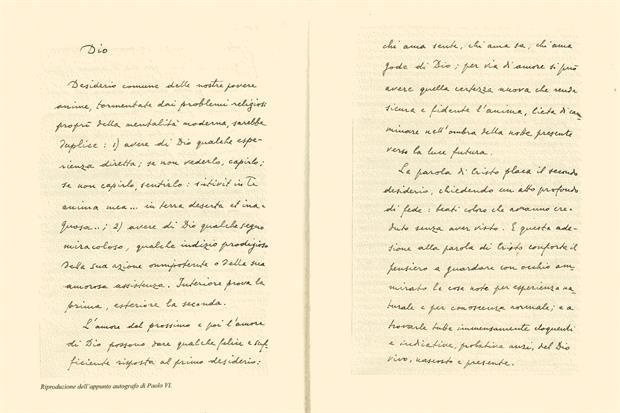 Dio
Desiderio comune delle nostre povere
anime, tormentate dai problemi religiosi
proprî della mentalità moderna, sarebbe
duplice: 1) avere di Dio qualche espe-
rienza diretta; se non vederlo, capirlo;
se non capirlo, sentirlo: sitivit in Te
anima mea... in terra deserta et ina-
quosa..; 2) avere di Dio qualche segno
miracoloso, qualche indizio prodigioso
della sua azione onnipotente o della sua
amorosa assistenza. Interiore prova la
prima, esteriore la seconda.
L'amore del prossimo e poi l'amore
di Dio possono dare qualche felice e suf-
ficiente risposta al primo desiderio:
Riproduzione dell'appunto autografo di Paolo VI.
chi ama sente, chi ama sa, chi ama
gode di Dio; per via di amore si può
avere quella certezza nuova che rende
sicura e fidente l'anima, lieta di cam-
minare nell'ombra della notte presente
verso la luce futura.
La parola di Cristo placa il secondo
desiderio, chiedendo un atto profondo
di fede: beati coloro che avranno cre-
duto senza aver visto. E questa ade-
sione alla parola di Cristo conforta il
pensiero a guardare con occhio am-
mirato le cose note per esperienza na-
turale e per conoscenza normale; e a
trovarle tutte immensamente eloquenti
e indicative, probative anzi, del Dio
vivo, nascosto e presente.